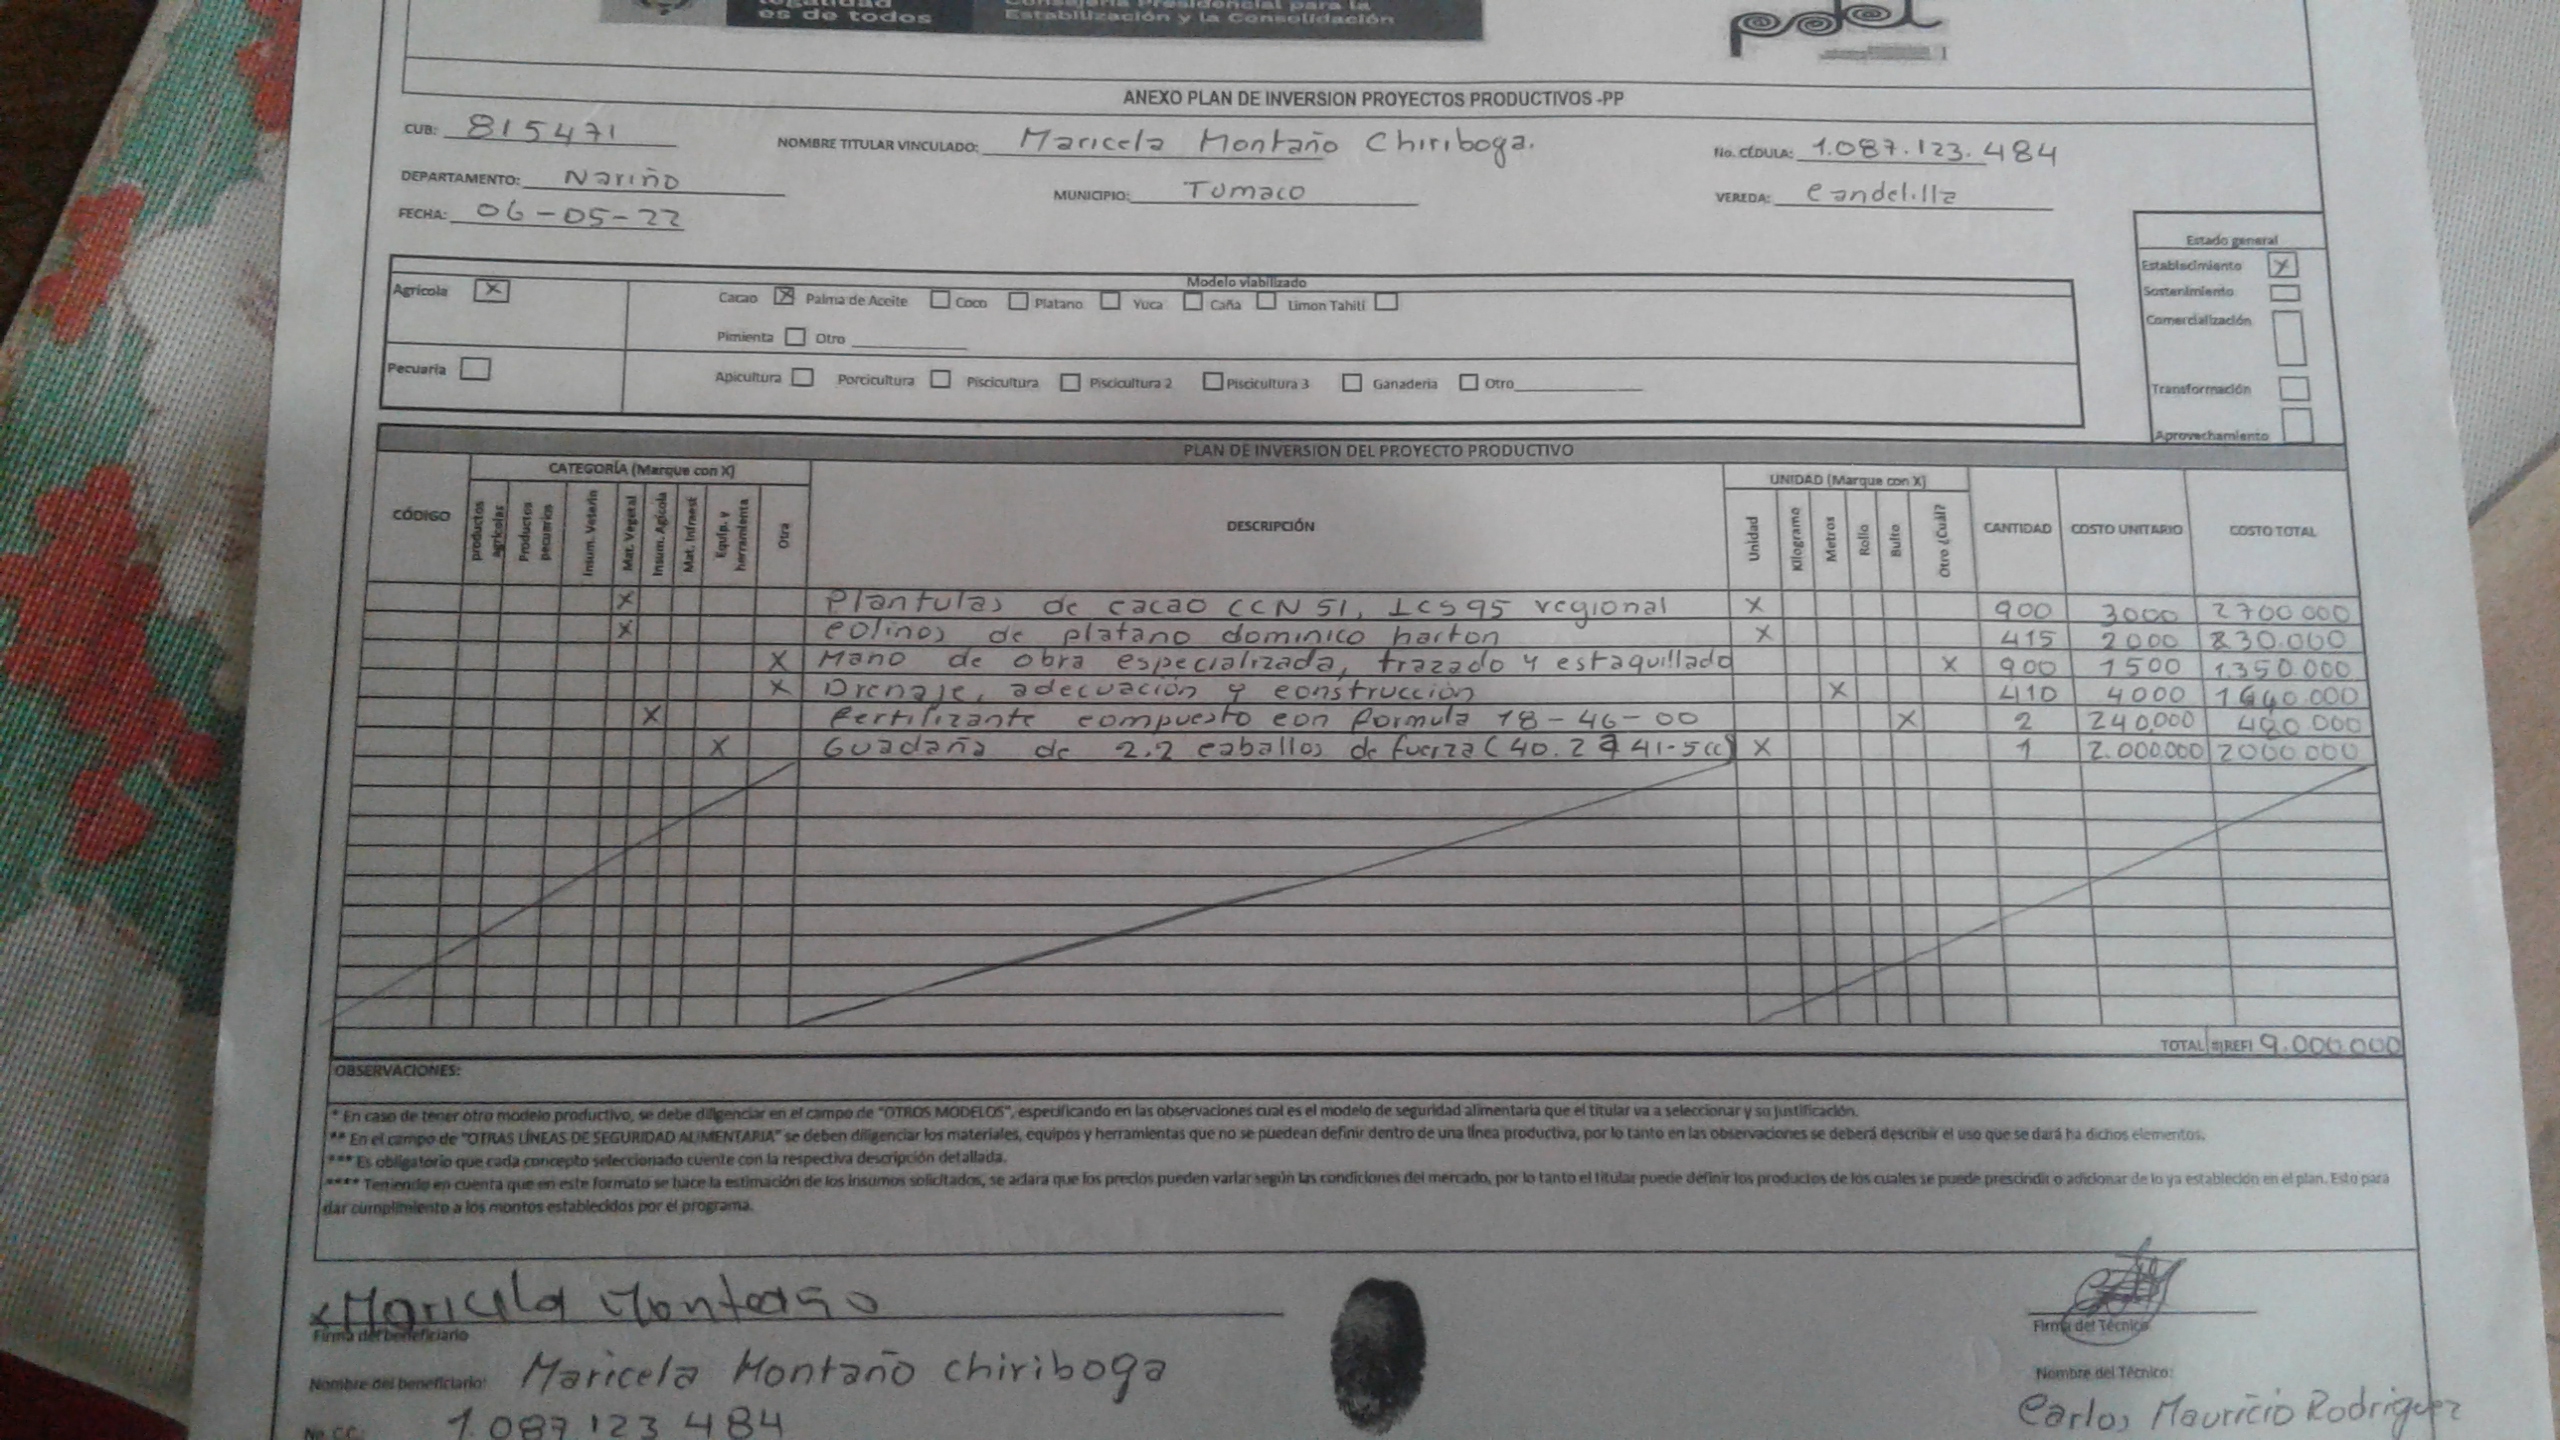 legalidad
es de todos
Consejería Presidencial para la
Estabilización y la Consolidación
pdet
ANEXO PLAN DE INVERSION PROYECTOS PRODUCTIVOS -PP
CUB: 815471 NOMBRE TITULAR VINCULADO: Maricela Montaño Chiriboga. No. CÉDULA: 1.087.123.484
DEPARTAMENTO: Nariño MUNICIPIO: Tumaco VEREDA: Candelilla
FECHA: 06-05-22
Estado general
Establecimiento X
Sostenimiento
Comercialización
Transformación
Aprovechamiento
Modelo viabilizado
Agrícola X Cacao X Palma de Aceite Coco Platano Yuca Caña Limon Tahití
Pimienta Otro
Pecuaria Apicultura Porcicultura Piscicultura Piscicultura 2 Piscicultura 3 Ganaderia Otro
PLAN DE INVERSION DEL PROYECTO PRODUCTIVO
CÓDIGO CATEGORÍA (Marque con X) DESCRIPCIÓN UNIDAD (Marque con X) CANTIDAD COSTO UNITARIO COSTO TOTAL
productos agrícolas Productos pecuarios Insum. Vetarin Mat. Vegetal Insum. Agícola Mat. Infraest Equip. y herramienta Otra Unidad Kilogramo Metros Rollo Bulto Otro ¿Cuál?
X Plantulas de cacao CCN 51, ICS 95 regional X 900 3000 2700.000
X Colinos de platano dominico harton X 415 2000 830.000
X Mano de obra especializada, trazado y estaquillado X 900 1500 1.350.000
X Drenaje, adecuación y construcción X 410 4000 1640.000
X Fertilizante compuesto con formula 18-46-00 X 2 240,000 480.000
X Guadaña de 2.2 caballos de fuerza (40.2 a 41-5cc) X 1 2.000.000 2000.000
TOTAL #¡REF! 9.000.000
OBSERVACIONES:
* En caso de tener otro modelo productivo, se debe diligenciar en el campo de "OTROS MODELOS", especificando en las observaciones cual es el modelo de seguridad alimentaria que el titular va a seleccionar y su justificación.
** En el campo de "OTRAS LÍNEAS DE SEGURIDAD ALIMENTARIA" se deben diligenciar los materiales, equipos y herramientas que no se puedean definir dentro de una línea productiva, por lo tanto en las observaciones se deberá describir el uso que se dará ha dichos elementos.
*** Es obligatorio que cada concepto seleccionado cuente con la respectiva descripción detallada.
**** Teniendo en cuenta que en este formato se hace la estimación de los insumos solicitados, se aclara que los precios pueden variar según las condiciones del mercado, por lo tanto el titular puede definir los productos de los cuales se puede prescindir o adicionar de lo ya establecido en el plan. Esto para
dar cumplimiento a los montos establecidos por el programa.
x Maricela Montaño
Firma del beneficiario Firma del Técnico
Nombre del beneficiario: Maricela Montaño Chiriboga Nombre del Técnico:
No. C.C. 1.087.123.484 Carlos Mauricio Rodriguez